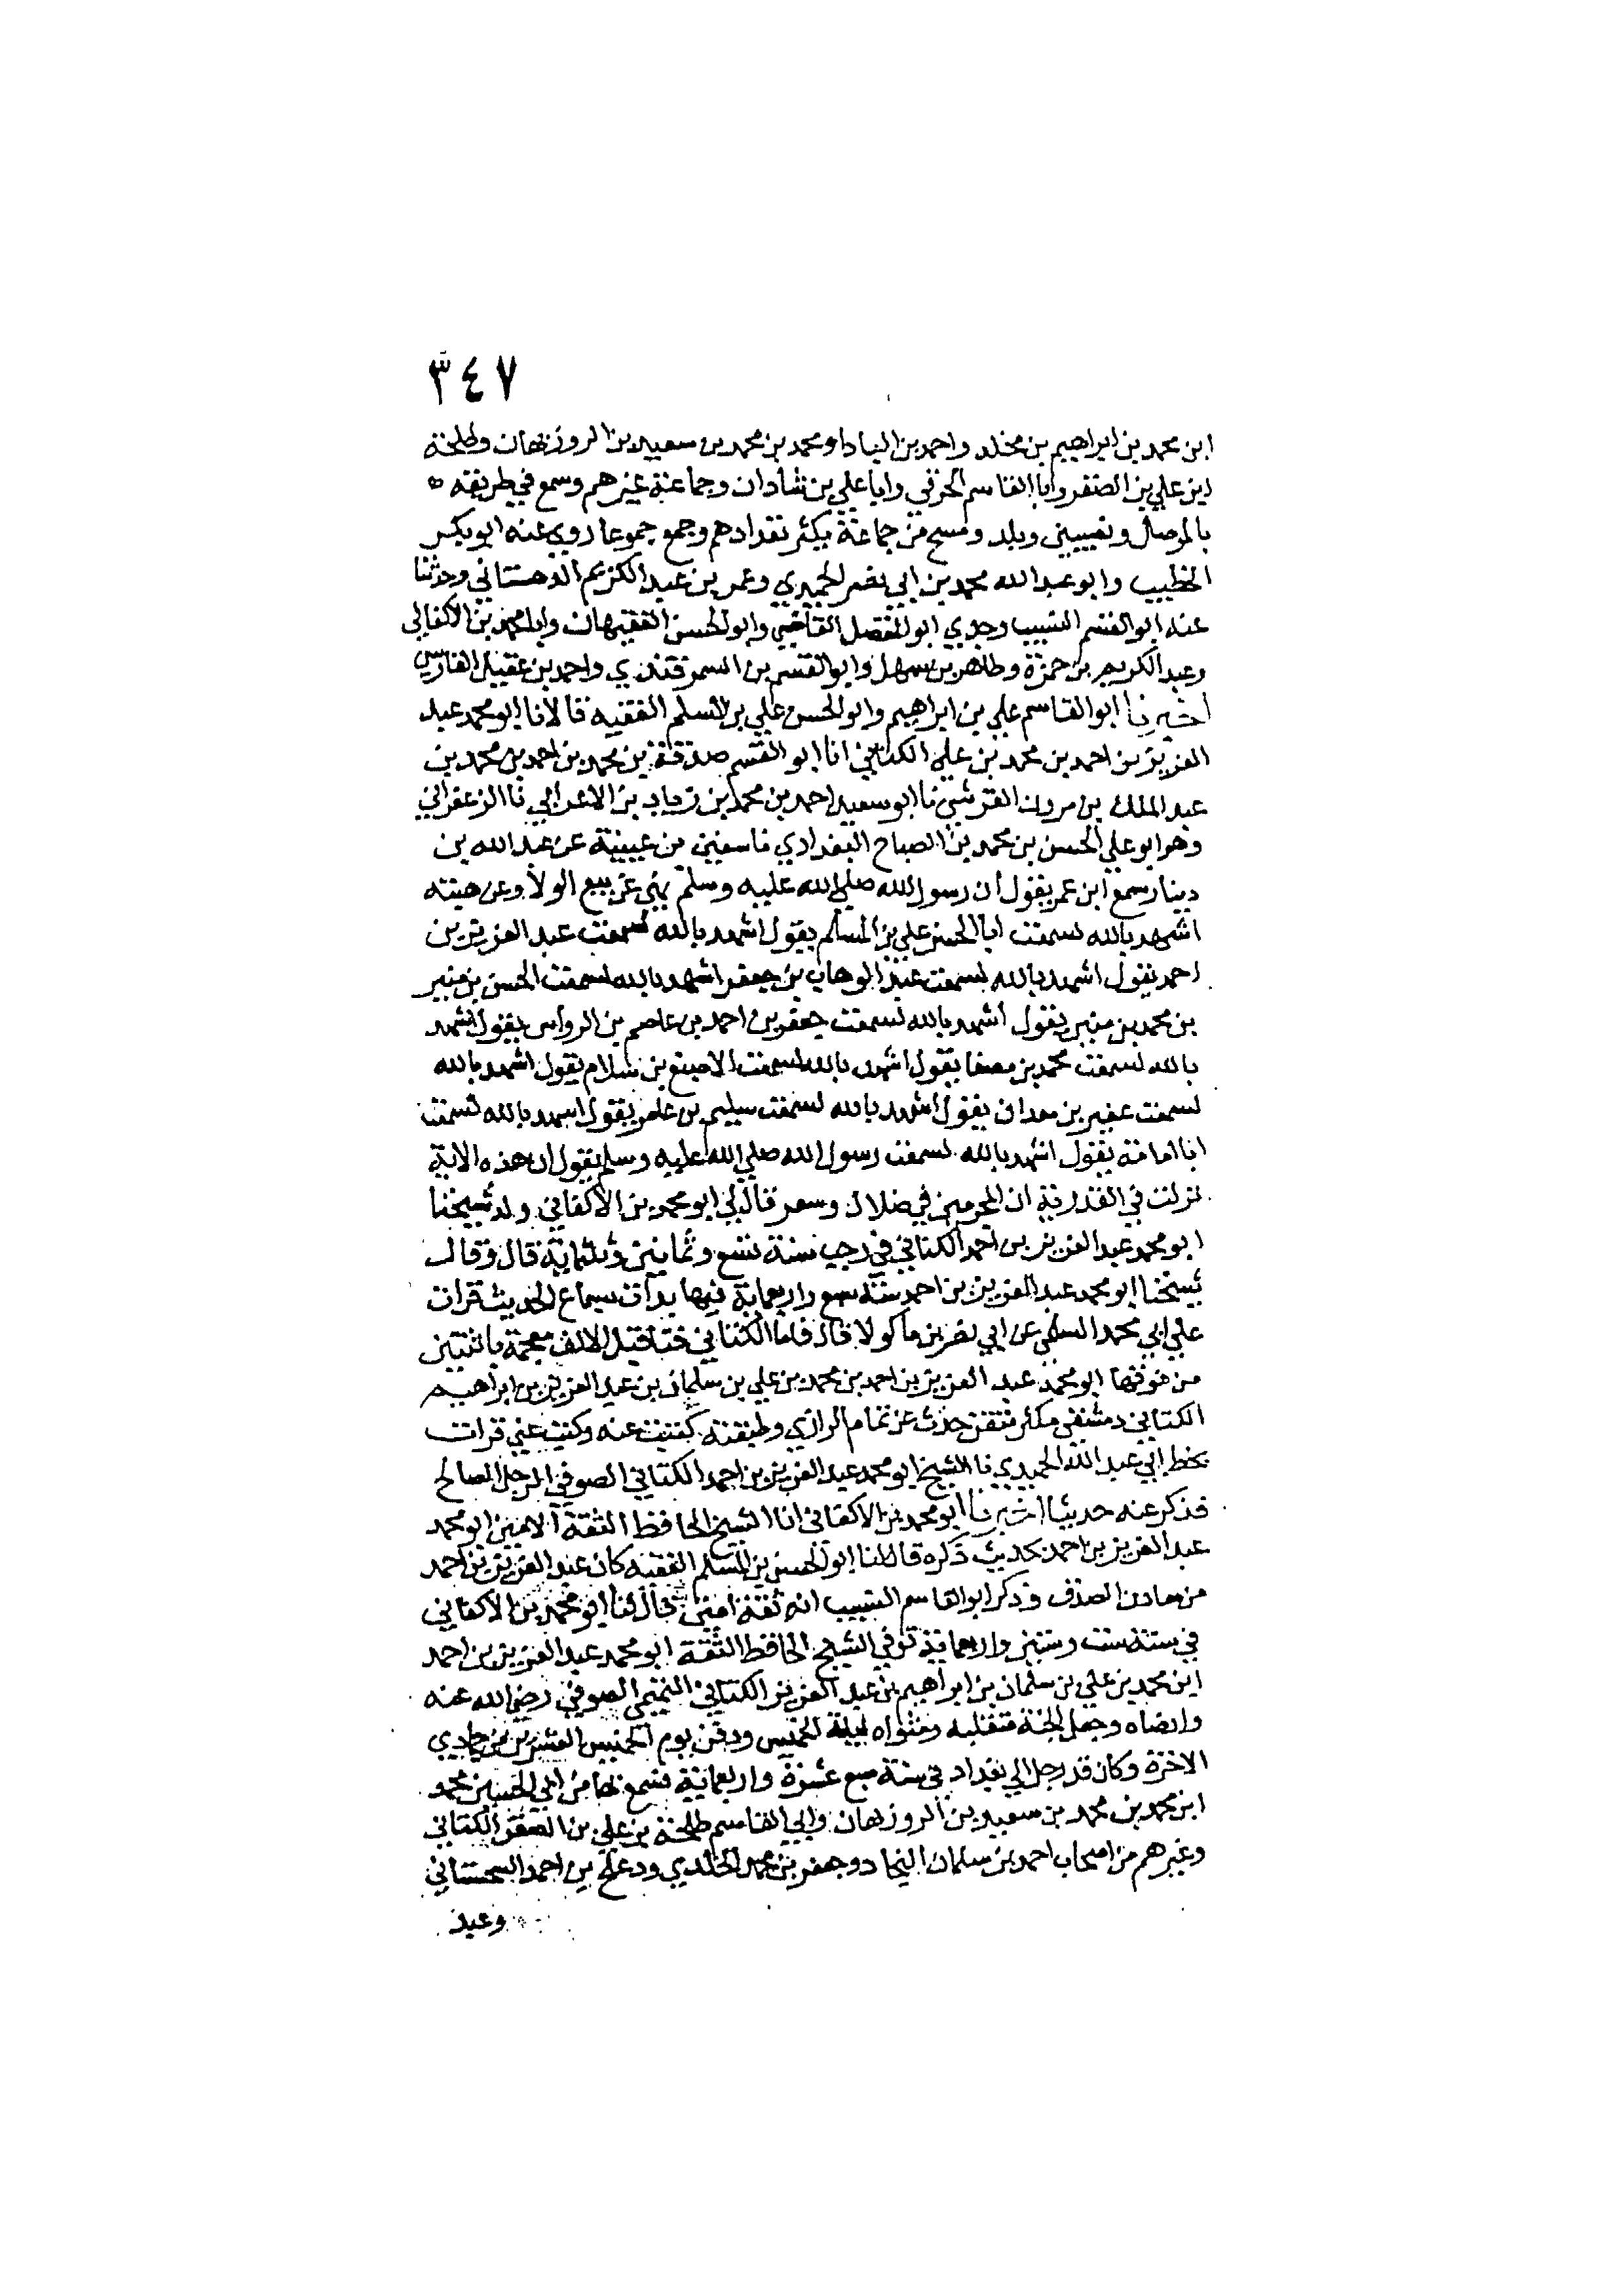 ٣٤٧
ابن محمد بن ابراهيم بن مخلد واحمد بن البادا ومحمد بن محمد بن سعيد بن الروزبهان وطلحة
ابن علي بن الصقر وابا القاسم الحرفي وابا علي بن شاذان وجماعة غيرهم وسمع في طريقه
بالموصل ونصيبين وبلد ومنبج من جماعة يكثر تعدادهم وجمع جموعا روى عنه ابو بكر
الخطيب وابو عبد الله محمد بن ابي نصر الحميدي وعمر بن عبد الكريم الدهستاني وحدثنا
عنه ابو القسم النسيب وجدي ابو المفضل القاضي وابو الحسن الفقيهان وابا محمد بن الاكفاني
وعبد الكريم بن حمزة وطاهر بن سهل وابو القسم بن السمرقندي واحمد بن عقيل الفارسي
اخبرنا ابو القاسم علي بن ابراهيم وابو الحسن علي بن المسلم الفقيه قالا نا ابو محمد عبد
العزيز بن احمد بن محمد بن علي الكتاني انا ابو القسم صدقة بن محمد بن احمد بن محمد بن
عبد الملك بن مروان القرشي نا ابو سعيد احمد بن محمد بن زياد بن الاعرابي نا الزعفراني
وهو ابو علي الحسن بن محمد بن الصباح البغدادي نا سفين بن عيينة عن عبد الله بن
دينار سمع ابن عمر يقول ان رسول الله صلى الله عليه وسلم نهي عن بيع الولاء وعن هبته
اشهد بالله لسمعت ابا الحسن علي بن المسلم يقول اشهد بالله لسمعت عبد العزيز بن
احمد يقول اشهد بالله لسمعت عبد الوهاب بن جعفر اشهد بالله لسمعت الحسن بن منير
بن محمد بن منير يقول أشهد بالله لسمعت جعفر بن احمد بن عاصم بن الرواس يقول اشهد
بالله لسمعت محمد بن مصفا يقول اشهد بالله لسمعت الاصبغ بن سلام يقول اشهد بالله
لسمعت عفير بن معدان يقول اشهد بالله لسمعت سليم بن عامر يقول اشهد بالله لسمعت
ابا امامة يقول اشهد بالله لسمعت رسول الله صلي الله عليه وسلم يقول ان هذه الاية
نزلت في القدرية ان المجرمين في ضلال وسعر قال لي ابو محمد بن الاكفاني ولد شيخنا
ابو محمد عبد العزيز بن احمد الكتاني في رجب سنة تسع وثمانين وثلثماية قال وقال
شيخنا ابو محمد عبد العزيز بن احمد سنة سبع واربعماية فيها بدات سماع الحديث قرات
علي ابي محمد السلمي عن ابي نصر بن ماكولا قال فاما الكتاني قبل الالف معجمة باثنتين
من فوقها ابو محمد عبد العزيز بن احمد بن محمد بن علي بن سلمان بن عبد العزيز بن ابراهيم
الكتاني دمشقي مكثر متقن حدث عن تمام الرازي وطبقته كتبت عنه وكتب عني قرات
بخط ابي عبد الله الحميدي نا الشيخ ابو محمد عبد العزيز بن احمد الكتاني الصوفي الرجل الصالح
فذكر عنه حديثا اخبرنا ابو محمد بن الاكفاني انا الشيخ الحافظ الثقة الامين ابو محمد
عبد العزيز بن احمد بحديث ذكره قال لنا ابو الحسن بن المسلم الفقيه كان عبد العزيز بن احمد
من معادن الصدق وذكر ابو القاسم النسيب انه ثقة امين قال لنا ابو محمد بن الاكفاني
في سنة ست وستين واربعماية توفي الشيخ الحافظ الثقة ابو محمد عبد العزيز بن احمد
ابن محمد بن علي بن سلمان بن ابراهيم بن عبد العزيز الكتاني التميمي الصوفي رضي الله عنه
وارضاه وجعل الجنة منقلبه ومثواه ليلة الخميس ودفن يوم الخميس العشرين من جمادي
الاخرة وكان قد رحل الي بغداد في سنة سبع عشرة واربعماية فسمع بها من ابي الحسن محمد
ابن محمد بن محمد بن سعيد بن الروزبهان وابي القاسم طلحة بن علي بن الصقر الكتاني
وغيرهم من اصحاب احمد بن سلمان النجاد وجعفر بن محمد الخلدي ودعلج بن احمد السجستاني
وعبد